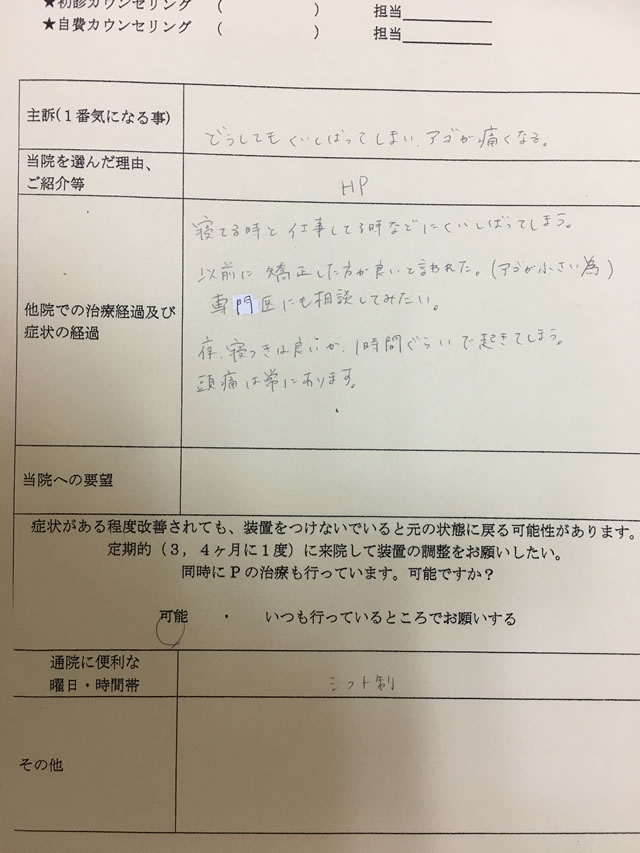 ★初診カウンセリング （　　　　） 担当
★自費カウンセリング （　　　　） 担当
主訴(１番気になる事)
どうしてもくいしばってしまい、アゴが痛くなる。
当院を選んだ理由、
ご紹介等
HP
寝てる時と仕事してる時などにくいしばってしまう。
以前に矯正した方が良いと言われた。(アゴが小さい為)
専門医にも相談してみたい。
他院での治療経過及び
症状の経過
夜、寝つきは良いが、1時間ぐらいで起きてしまう。
頭痛は常にあります。
当院への要望
症状がある程度改善されても、装置をつけないでいると元の状態に戻る可能性があります。
定期的（３，４ヶ月に１度）に来院して装置の調整をお願いしたい。
同時にＰの治療も行っています。可能ですか？
可能　・　いつも行っているところでお願いする
通院に便利な
曜日・時間帯
シフト制
その他